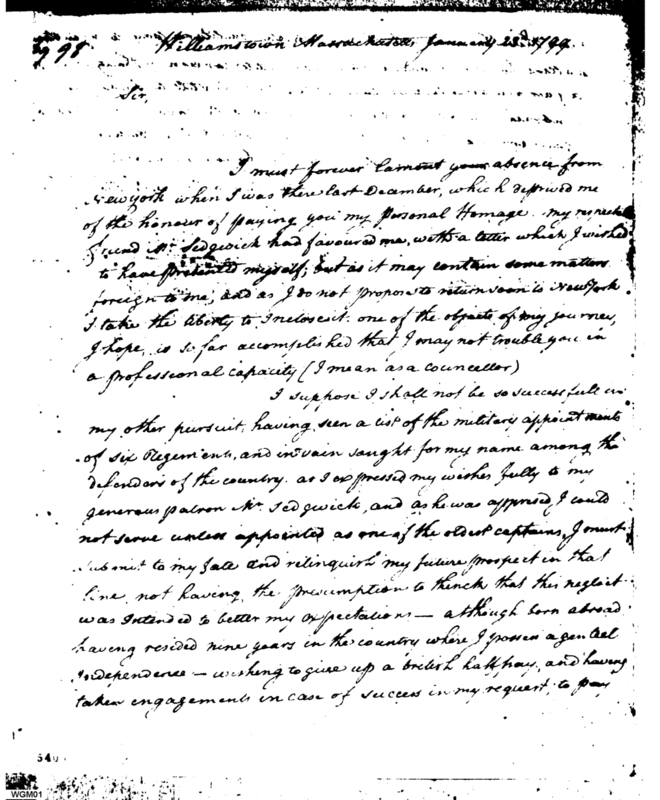 98
Williamstown Massachusetts January 23d 1799
Sir,
I must forever lament your absence from
New york when I was there last December, which deprived me
of the honour of paying you my personal Homage. my respectable
friend Mr. Sedgwick had favoured me with a letter which I wished
to have presented myself; but as it may contain some matters
foreign to me, and as I do not propose to return soon to New York
I take the liberty to Inclose it. one of the objects of my journey,
I hope, is so far accomplished that I may not trouble you in
a professional capacity (I mean as a councellor)
I suppose I shall not be so successfull in
my other pursuit, having seen a list of the military appointments
of six Regements, and in vain saught for my name among the
defenders of the country. as I expressed my wishes fully to my
generous patron Mr. Sedgwick, and as he was apprised I could
not serve unless appointed as one of the oldest captains, I must
submit to my fate and relinquish my future prospect in that
line, not having the presumption to thinck that this neglect
was Intended to better my expectations — although born abroad
having resided nine years in the country where I possess a genteel
Independence — wishing to give up a british half pay, and having
taken engagements in case of success in my request, to pay
540
WGM01